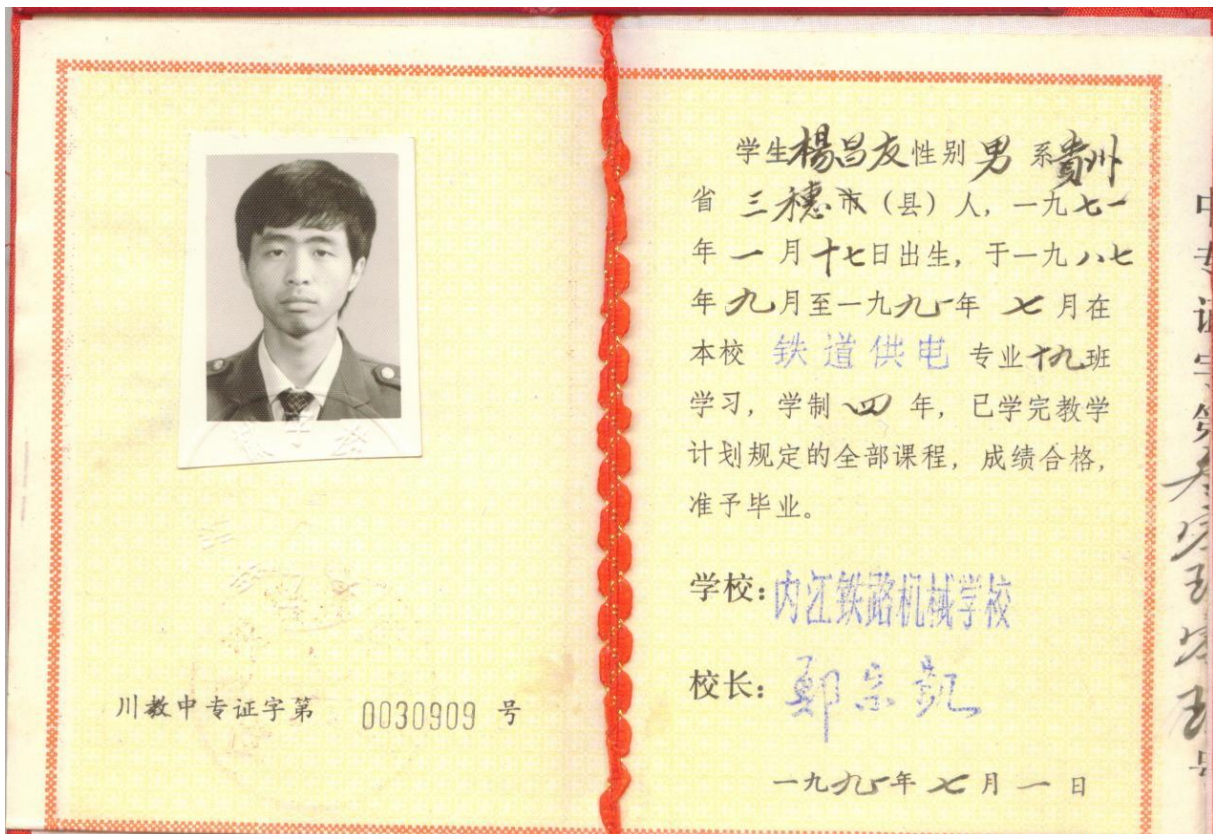 川教中专证字第 0030909 号
学生楊昌友性别男系貴州
省三穗市（县）人，一九七一
年一月十七日出生，于一九八七
年九月至一九九一年七月在
本校 铁道供电 专业十九班
学习，学制四年，已学完教学
计划规定的全部课程，成绩合格，
准予毕业。
学校：内江铁路机械学校
校长：
一九九一年七月一日